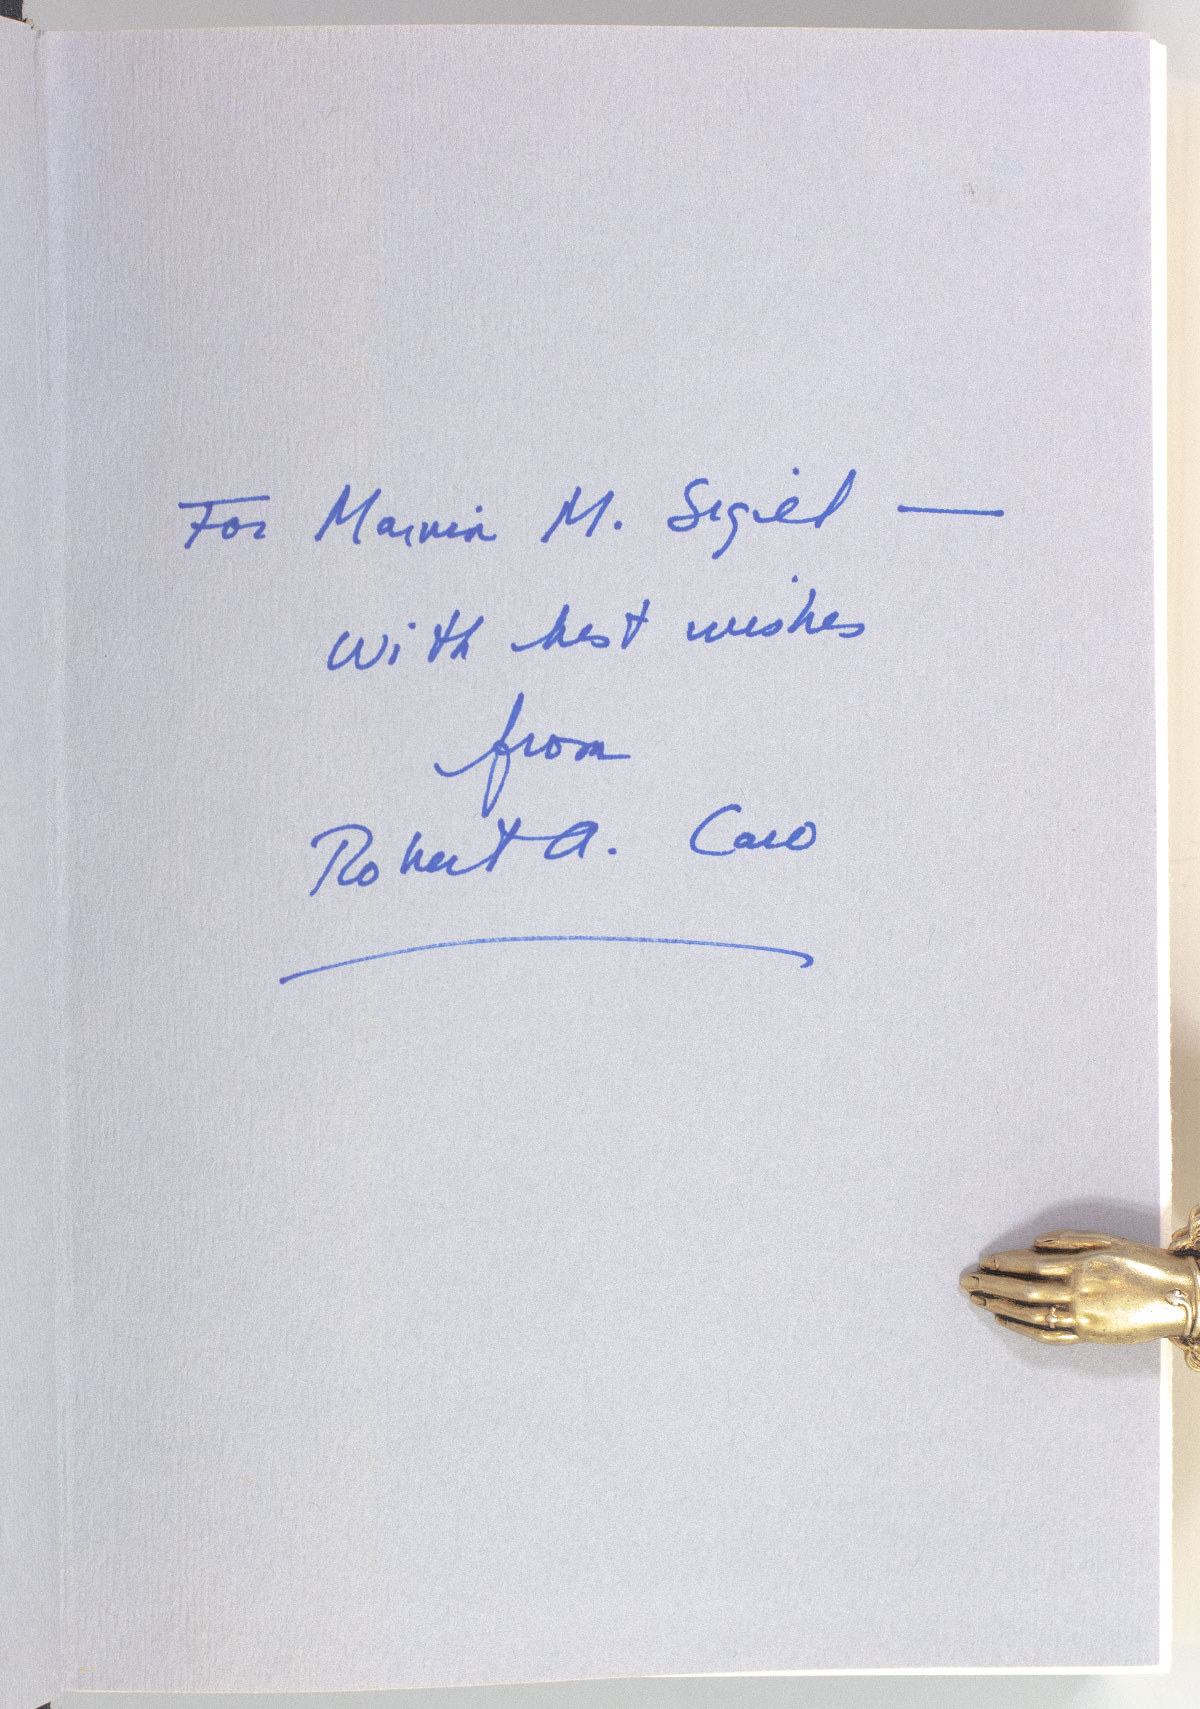 For Marvin M. Segiel —
With best wishes
from
Robert A. Caro